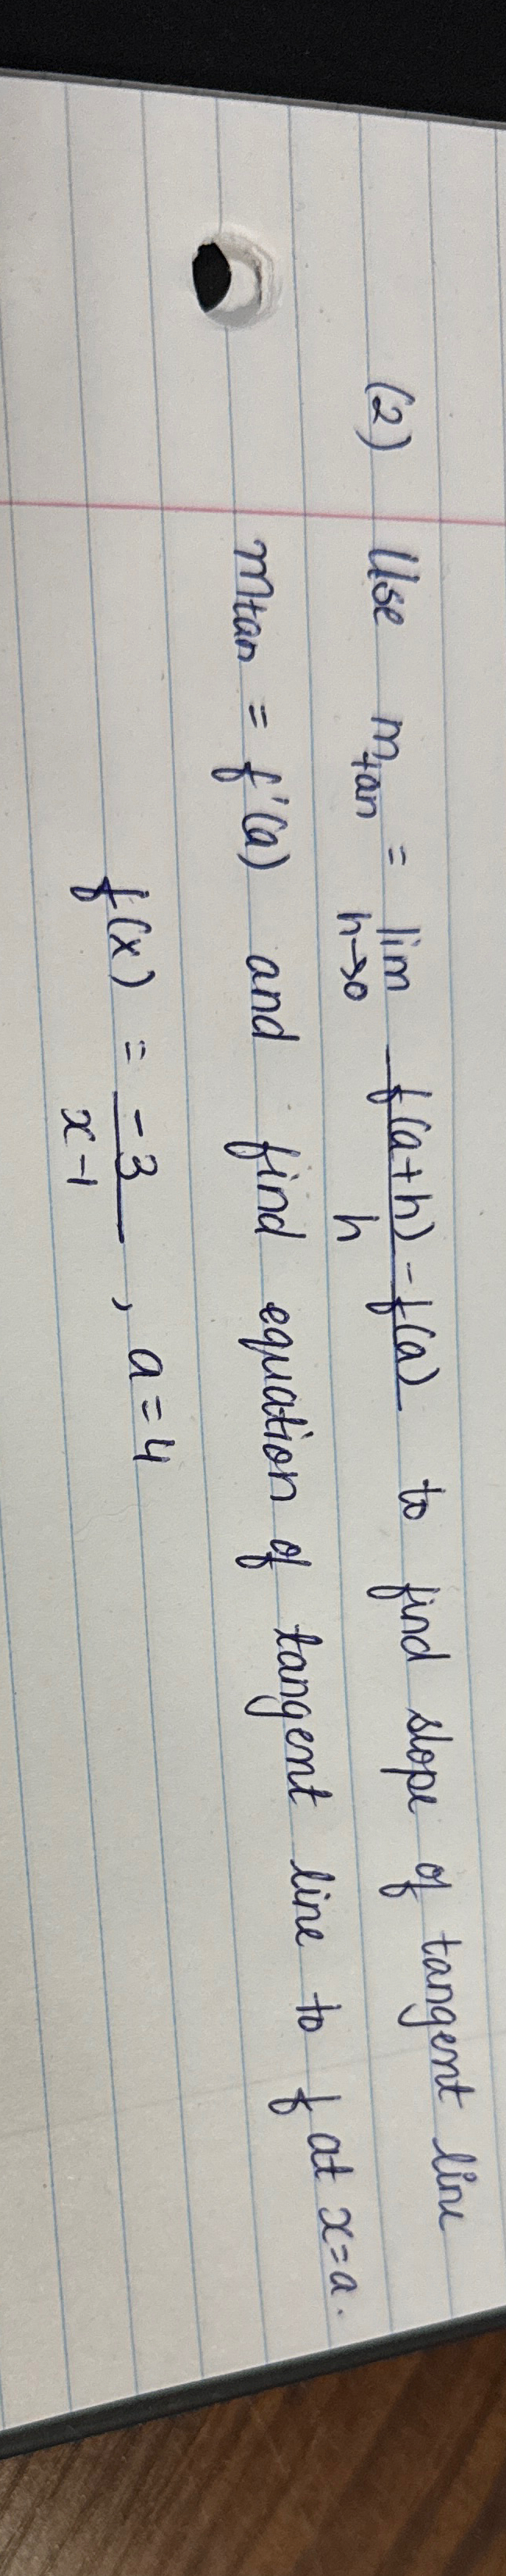 (2) Use m_tan = lim_{h→0} \frac{f(a+h) - f(a)}{h} to find slope of tangent line
m_tan = f'(a) and find equation of tangent line to f at x=a.
f(x) = \frac{-3}{x-1} , a=4